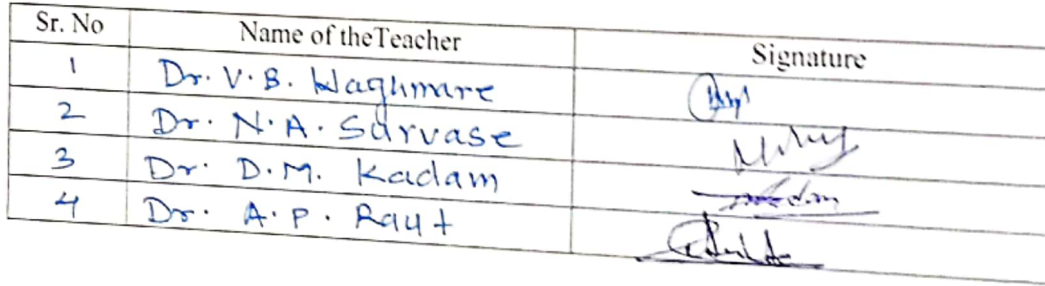 Sr. No Name of theTeacher Signature
1 Dr. V.B. Waghmare
2 Dr. N.A. Sarvase
3 Dr. D.M. Kadam
4 Dr. A.P. Raut